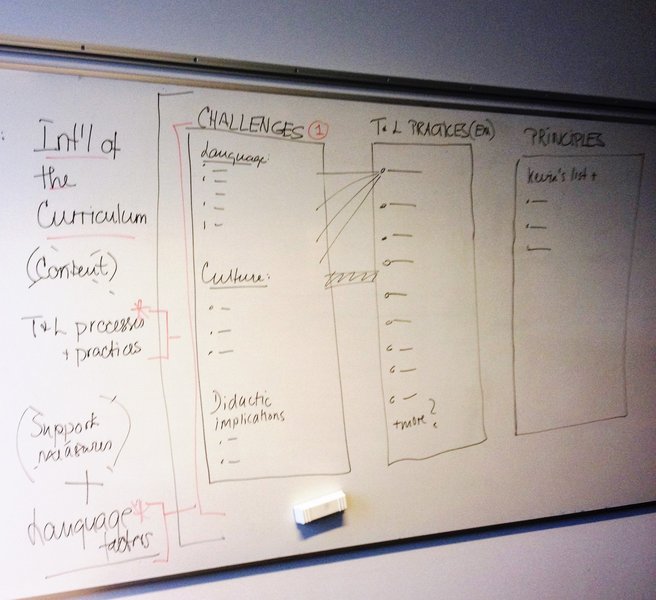 Int'l of
the
Curriculum
(Content)
T&L processes
+ practices
(Support
measures)
+
Language
factors
CHALLENGES 1
Language:
Culture:
Didactic
implications
T&L PRACTICES (EMI)
+more?
PRINCIPLES
Kevin's list +